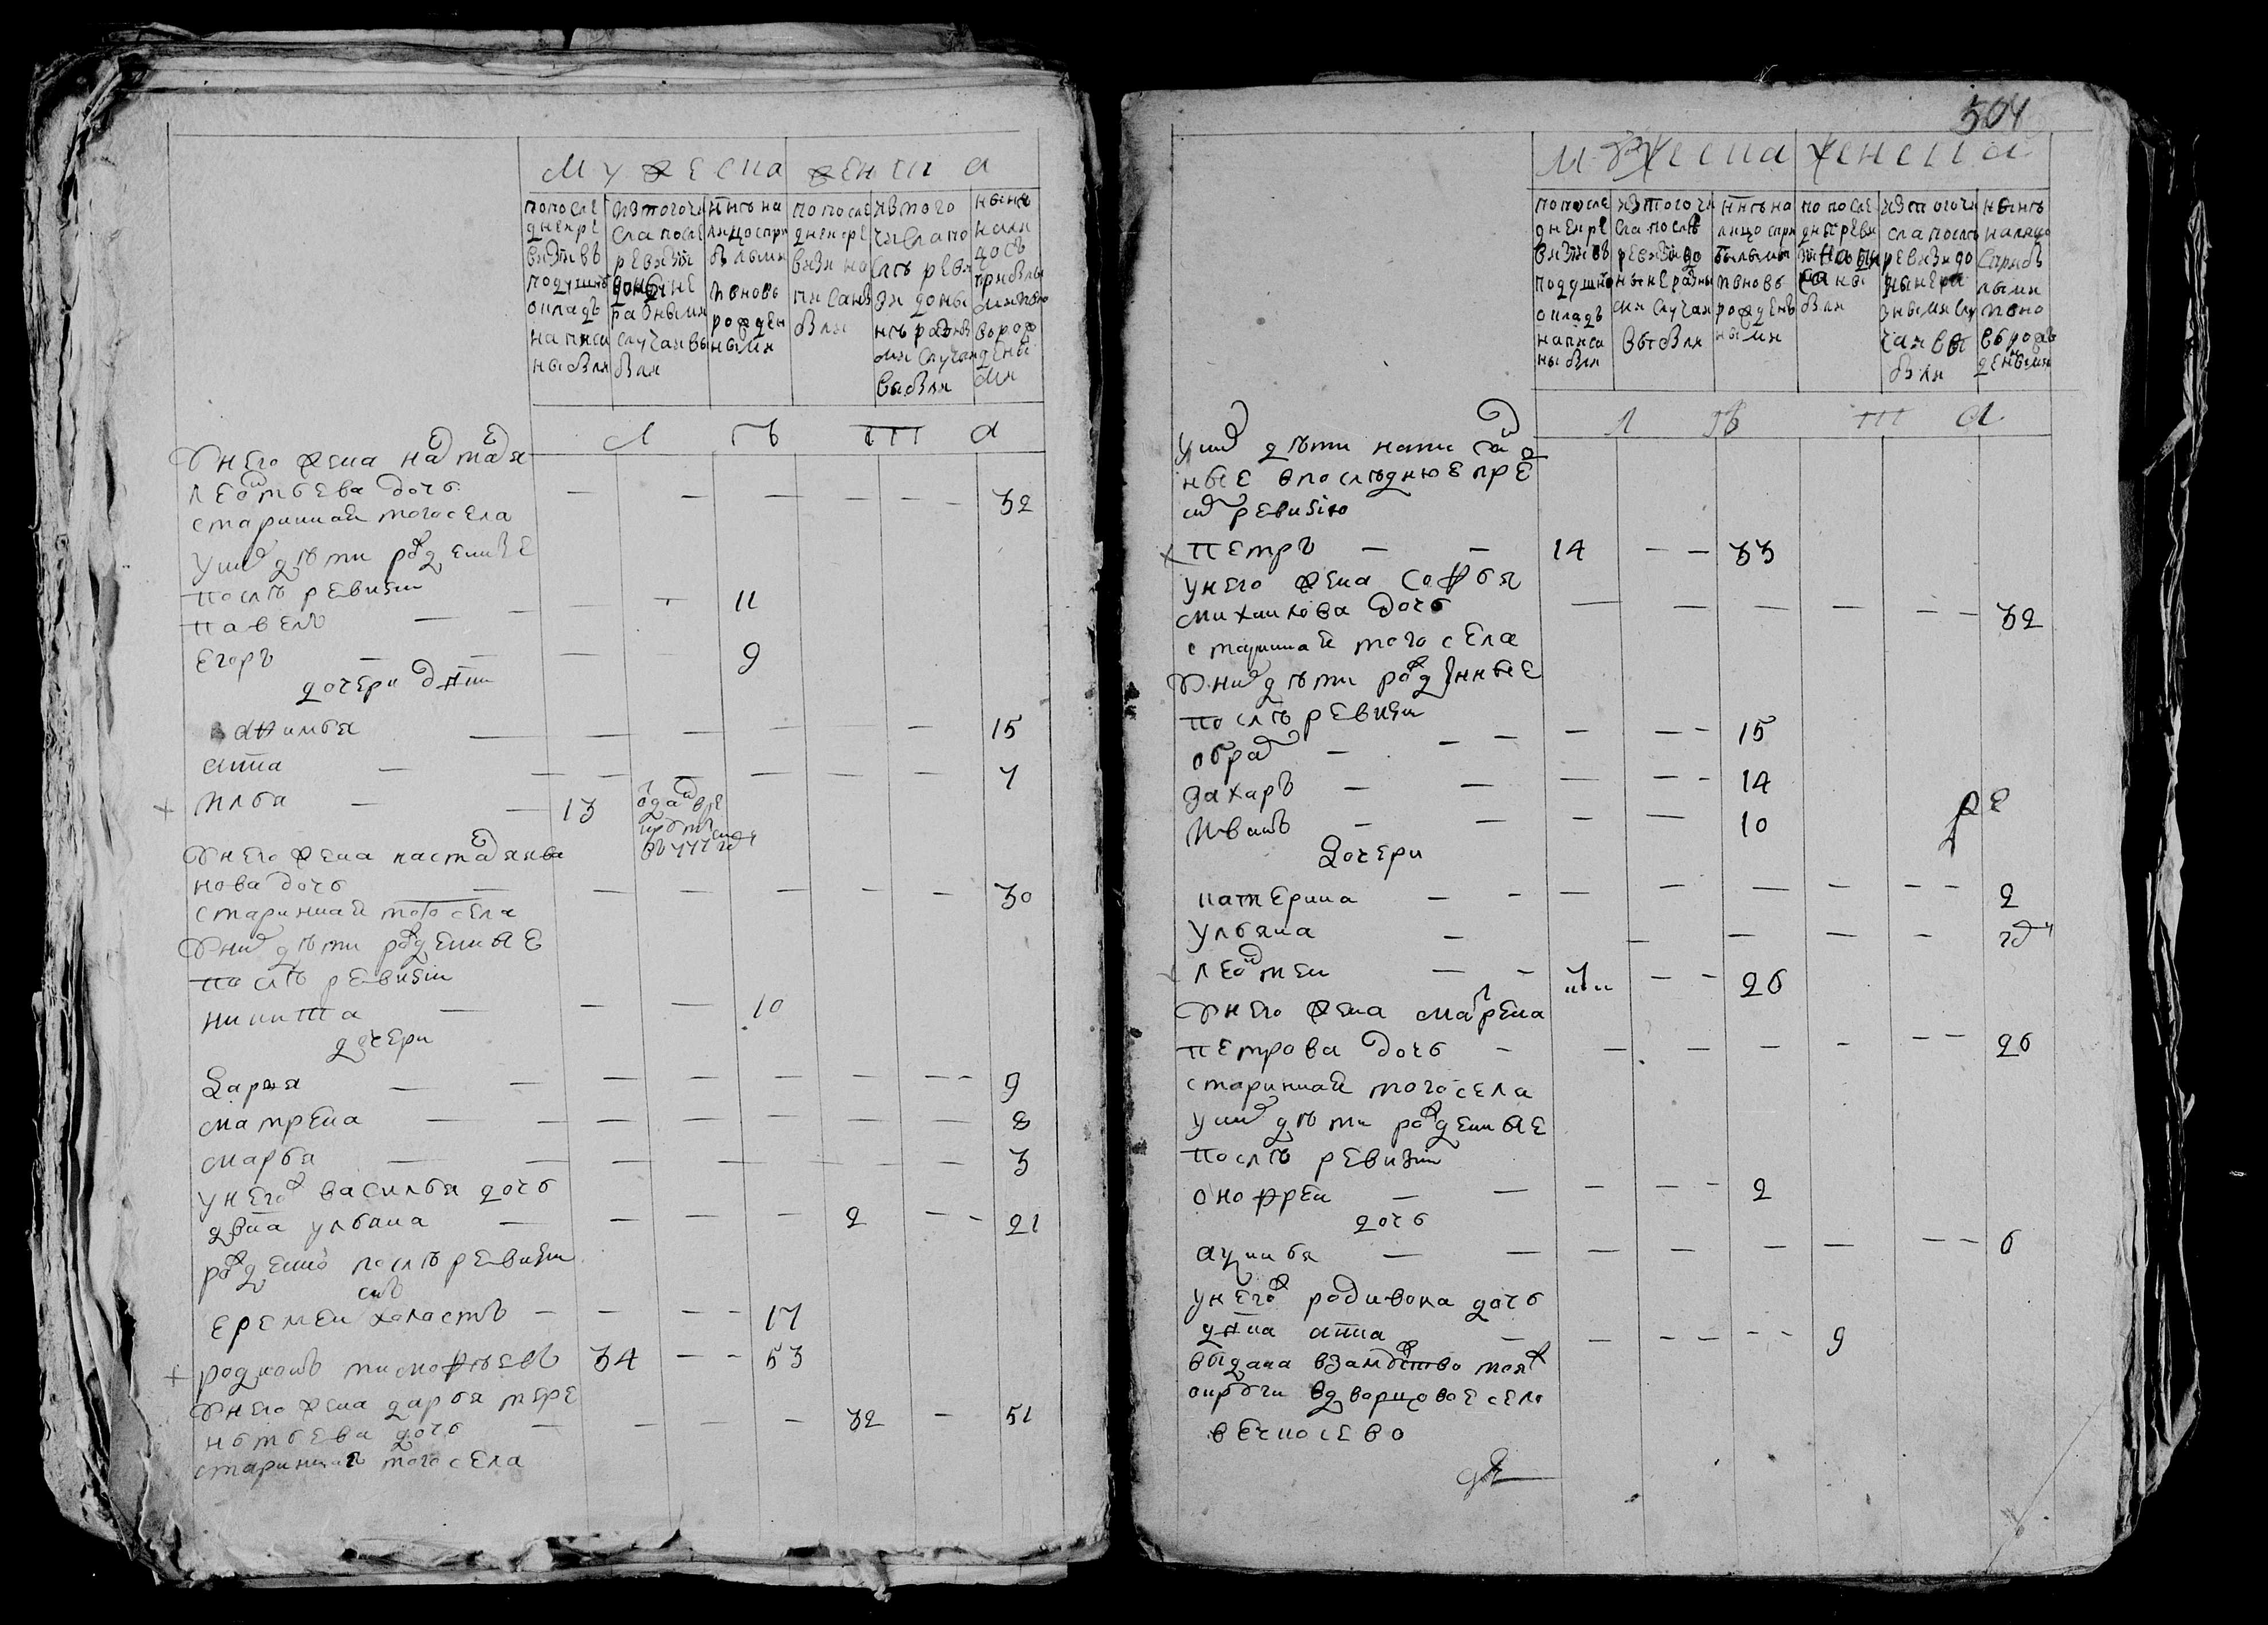 мужеска женска
попосле
дней ре
визïи въ
подушно
окладъ
написа
ны были
изтогочи
сла после
ревизïи
доныне
разными
случаи вы
были
ныне на
лицо спри
былыми
ивновь
рожден
ными
по после
дней ре
визи на
писаны
были
изтого
числа по
сле реви
зи доны
не разны
ми случаи
выбыли
ныне
нали
цо съ
прибылы
ми ивно
ворож
дены
ми
л ѣ т а
У него жена наталя
леонтьева дочь
старинная тогосела 32
У них дети рожденые
после ревизïи
павелъ 11
Егоръ 9
дочери девки
акилина 15
анна 7
Илья 13 отдан в ре
круты
въ 777 год
У него жена настася ива
нова дочь 30
старинная того села
У них дети рожденые
после ревизïи
никита 10
дочери
Дарья 9
матрена 8
марья 3
у него ж василья дочь
девка ульяна 2 21
рожденной после ревизïи
сынъ
еремей холостъ 17
родионъ тимофеевъ 34 53
У него жена дарья тере
нтьева дочь 32 51
старинная того села
504
мужеска женска
попосле
дней ре
визïи въ
подушно
окладъ
написа
ны были
изтогочи
сла после
ревизи до
ныне разны
ми случаи
выбыли
ныне на
лицо при
былыми
ивновь
рожденъ
ными
по после
дней реви
зи написа
ны
были
изтогочи
сла после
ревизи до
ныне ра
зными слу
чаи вы
были
ныне
налицо
сприбы
лыми
ивно
вь рож
денными
л ѣ т а
у них дети написан
ные впоследнюю пре
ж ревизïю
петръ 14 33
у него жена софья
михаилова дочь 32
старинная того села
У них дети рожденные
после ревизïи
15
Захаръ 14
Иванъ 10
Дочери
катерина 2
Ульяна год
леонтеи 7 26
У него жена матрена
петрова дочь 26
старинная того села
у них дети рожденые
после ревизïи
онофреи 2
дочь
акулина 6
у него ж родивона дочь
девка анна 9
выдана взамужство
округи вдворцовое село